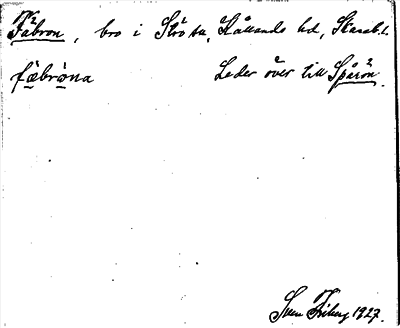 Fäbron, bro i Strö sn, Kållands hd, Skarab. l.
fäbröna Leder över till Spårön.
Sven Friberg 1927.